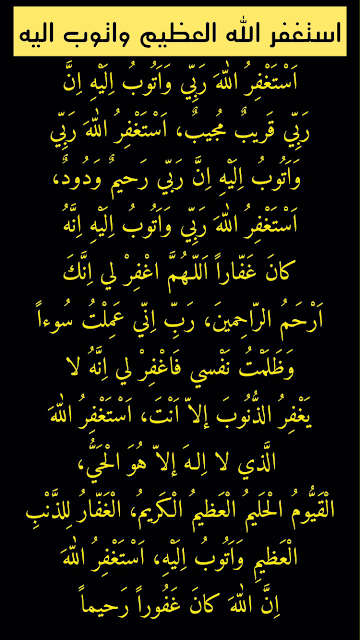 استغفر الله العظيم واتوب اليه
اَسْتَغْفِرُ اللهَ رَبِّي وَاَتُوبُ اِلَيْهِ اِنَّ
رَبِّي قَرِيبٌ مُجِيبٌ، اَسْتَغْفِرُ اللهَ رَبِّي
وَاَتُوبُ اِلَيْهِ اِنَّ رَبِّي رَحيمٌ وَدُودٌ،
اَسْتَغْفِرُ اللهَ رَبِّي وَاَتُوبُ اِلَيْهِ اِنَّهُ
كانَ غَفّاراً اَللّـهُمَّ اغْفِرْ لي اِنَّكَ
اَرْحَمُ الرّاحِمينَ، رَبِّ اِنّي عَمِلْتُ سُوءاً
وَظَلَمْتُ نَفْسي فَاغْفِرْ لي اِنَّهُ لا
يَغْفِرُ الذُّنُوبَ اِلاّ اَنْتَ، اَسْتَغْفِرُ اللهَ
الَّذي لا اِلـهَ اِلاّ هُوَ الْحَيُّ،
الْقَيُّومُ الْحَليمُ الْعَظيمُ الْكَريمُ، الْغَفّارُ لِلذَّنْبِ
الْعَظيمِ وَاَتُوبُ اِلَيْهِ، اَسْتَغْفِرُ اللهَ
اِنَّ اللهَ كانَ غَفُوراً رَحيماً